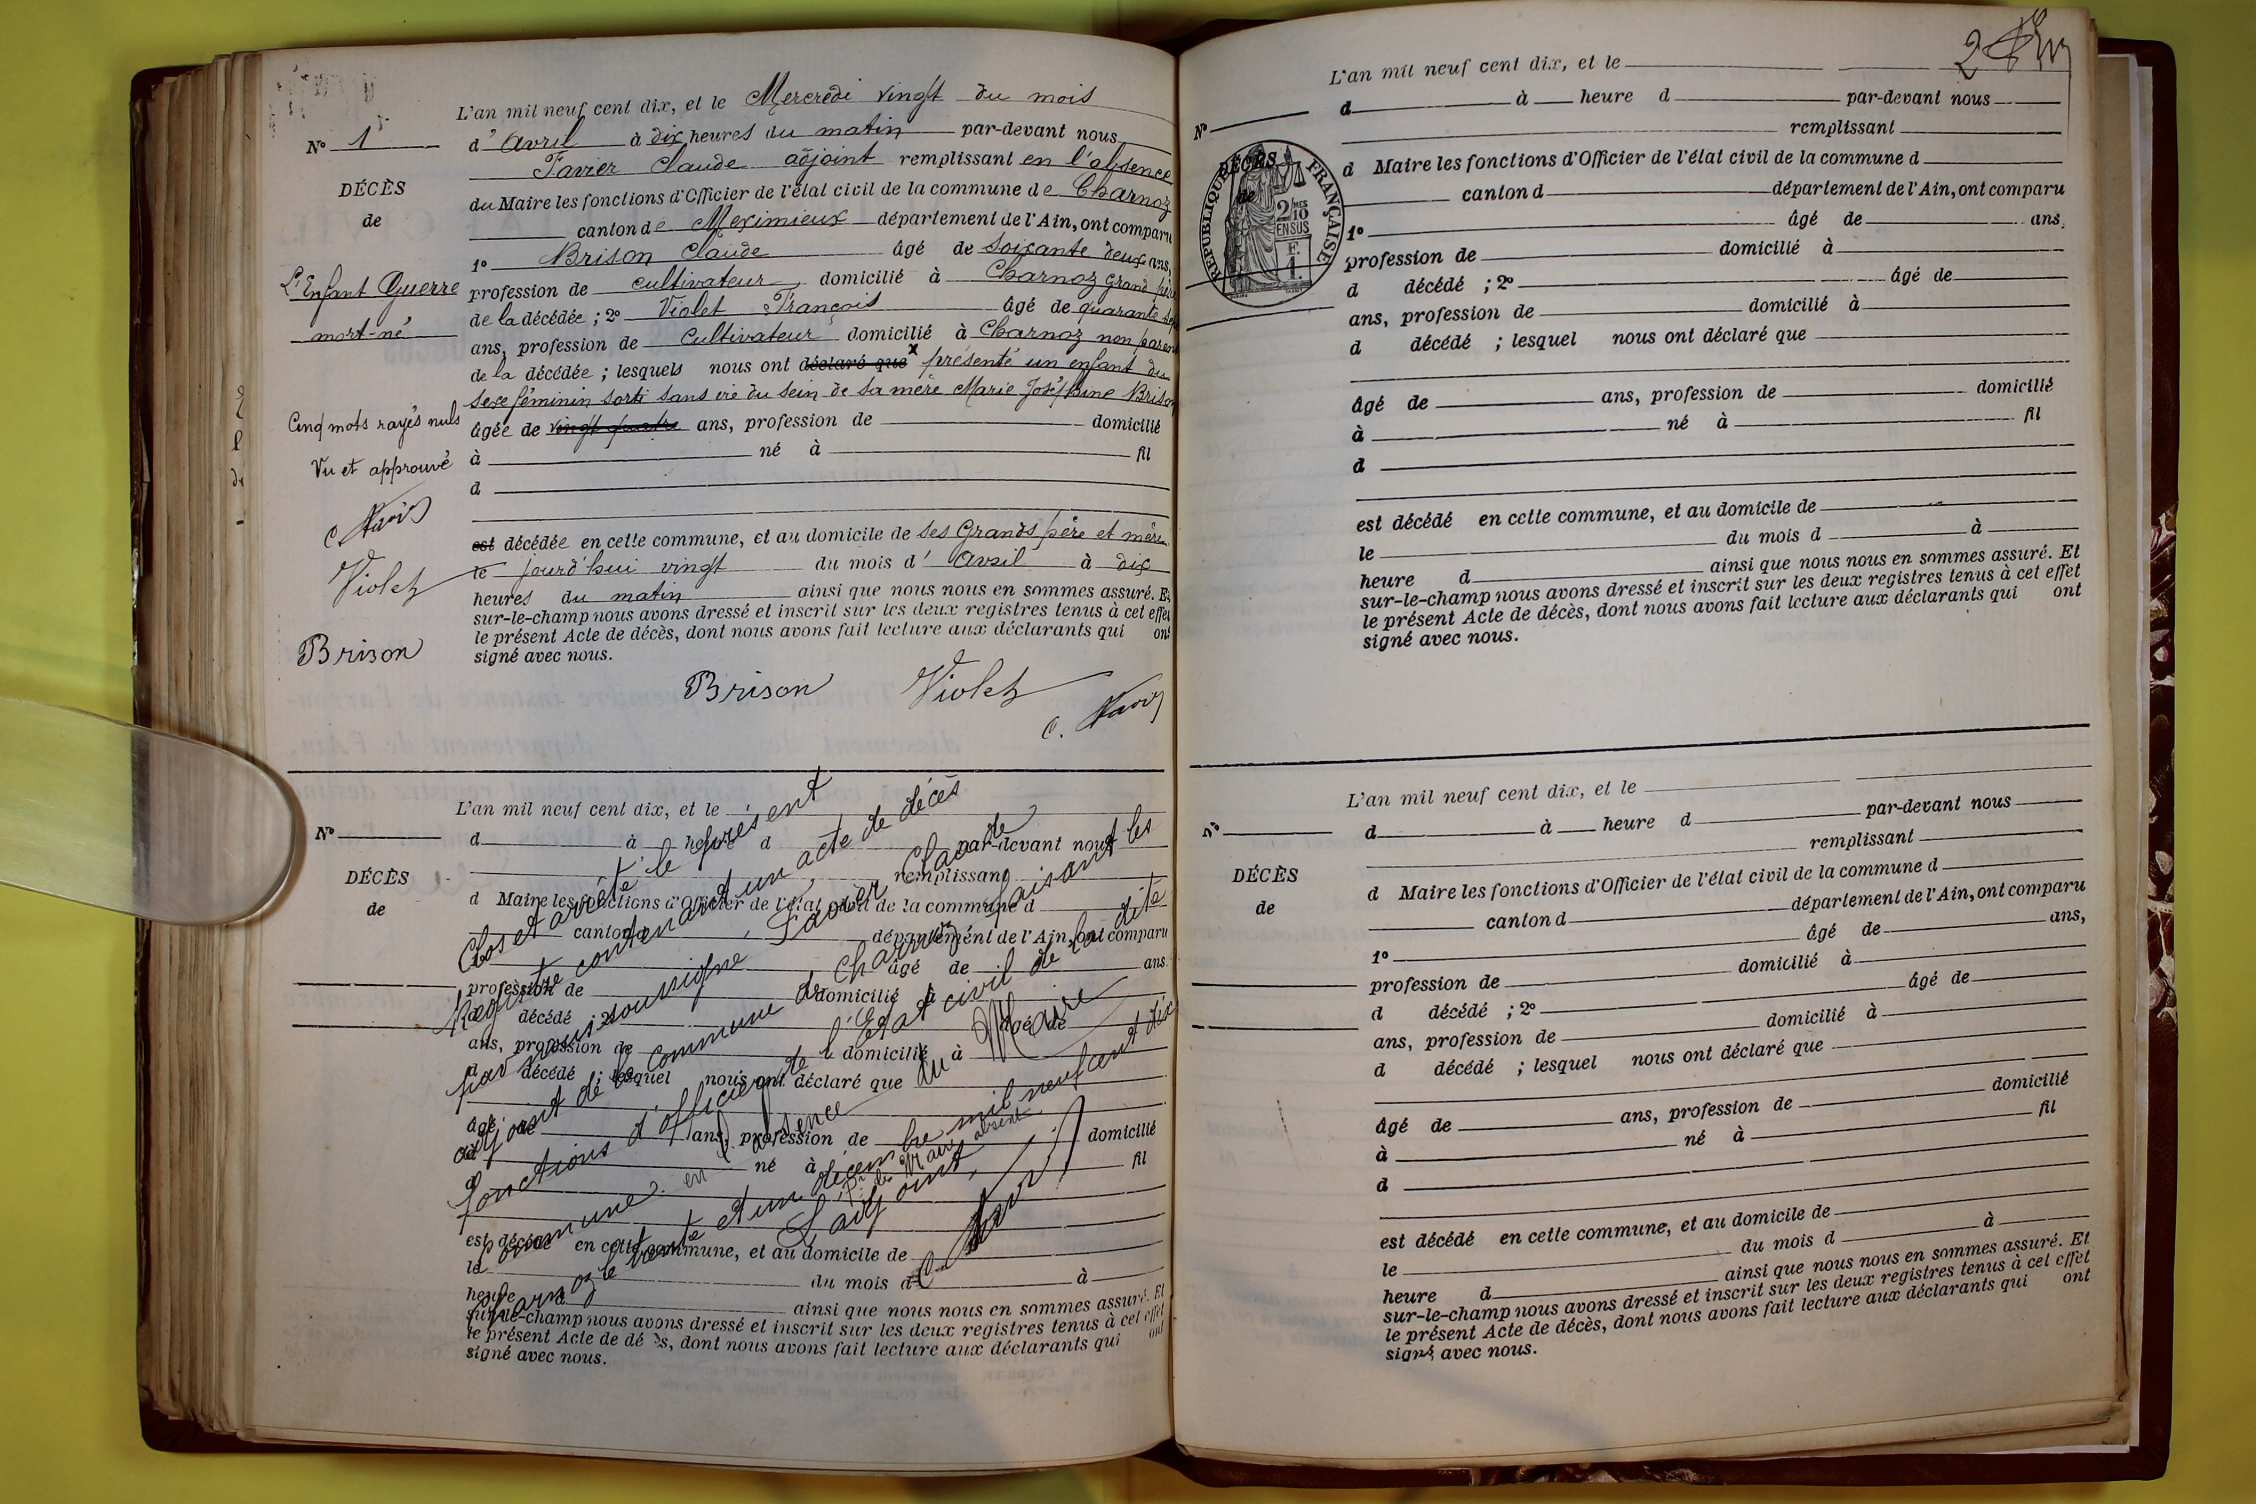 L'an mil neuf cent dix, et le Mercredi vingt du mois
N° 1
d' Avril à dix heures du matin par-devant nous
Favier Claude adjoint remplissant en l'absence
DÉCÈS
du Maire les fonctions d'Officier de l'état civil de la commune de Charnoz
de
canton de Meximieux département de l'Ain, ont comparu
1° Brison Claude âgé de soixante deux ans,
L'Enfant Guerre
profession de cultivateur domicilié à Charnoz Grand père
mort-né
de la décédée ; 2° Violet François âgé de quarante sept
ans, profession de Cultivateur domicilié à Charnoz non parent
de la décédée ; lesquels nous ont déclaré que x présenté un enfant du
sexe féminin sorti sans vie du sein de sa mère Marie Joséphine Brison
Cinq mots rayés nuls
âgée de vingt quatre ans, profession de domicilié
Vu et approuvé
à né à fil
d
C. Favier
est décédée en cette commune, et au domicile de ses Grands père et mère
Violet
le jourd'hui vingt du mois d' Avril à dix
heures du matin ainsi que nous nous en sommes assuré. Et
sur-le-champ nous avons dressé et inscrit sur les deux registres tenus à cet effet
le présent Acte de décès, dont nous avons fait lecture aux déclarants qui ont
Brison
signé avec nous.
Brison Violet
C. Favier
L'an mil neuf cent dix, et le
N°
d à heure d par-devant nous
remplissant
DÉCÈS
d Maire les fonctions d'Officier de l'état civil de la commune d
de
canton d département de l'Ain, ont comparu
1° âgé de ans.
profession de domicilié à
d décédé ; 2° âgé de
ans, profession de domicilié à
d décédé ; lesquel nous ont déclaré que
âgé de ans, profession de domicilié
à né à fil
d
est décédé en cette commune, et au domicile de
le du mois d à
heure d ainsi que nous nous en sommes assuré. Et
sur-le-champ nous avons dressé et inscrit sur les deux registres tenus à cet effet
le présent Acte de décès, dont nous avons fait lecture aux déclarants qui ont
signé avec nous.
Clos et arrêté le présent
Registre contenant un acte de décès
par nous soussigné, Favier Claude
adjoint de la commune de Charnoz faisant les
fonctions d'officier de l'Etat civil de la dite
commune. en l'absence du Maire
Charnoz le trente et un décembre mil neuf cent dix
Pr le Maire absent
L'adjoint,
C. Favier
2
L'an mil neuf cent dix, et le
d à heure d par-devant nous
N°
remplissant
DÉCÈS
d Maire les fonctions d'Officier de l'état civil de la commune d
de
canton d département de l'Ain, ont comparu
RÉPUBLIQUE FRANÇAISE
2/10 MES
EN SUS
F.
1.
1° âgé de ans,
profession de domicilié à
d décédé ; 2° âgé de
ans, profession de domicilié à
d décédé ; lesquel nous ont déclaré que
âgé de ans, profession de domicilié
à né à fil
d
est décédé en cette commune, et au domicile de
le du mois d à
heure d ainsi que nous nous en sommes assuré. Et
sur-le-champ nous avons dressé et inscrit sur les deux registres tenus à cet effet
le présent Acte de décès, dont nous avons fait lecture aux déclarants qui ont
signé avec nous.
L'an mil neuf cent dix, et le
N°
d à heure d par-devant nous
remplissant
DÉCÈS
d Maire les fonctions d'Officier de l'état civil de la commune d
de
canton d département de l'Ain, ont comparu
1° âgé de ans,
profession de domicilié à
d décédé ; 2° âgé de
ans, profession de domicilié à
d décédé ; lesquel nous ont déclaré que
âgé de ans, profession de domicilié
à né à fil
d
est décédé en cette commune, et au domicile de
le du mois d à
heure d ainsi que nous nous en sommes assuré. Et
sur-le-champ nous avons dressé et inscrit sur les deux registres tenus à cet effet
le présent Acte de décès, dont nous avons fait lecture aux déclarants qui ont
signé avec nous.